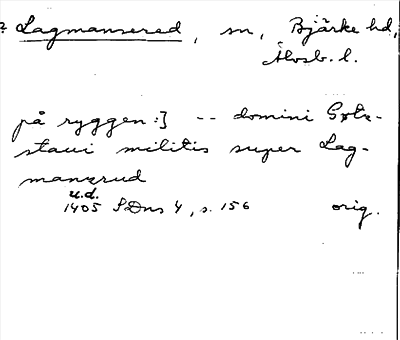 ? Lagmansered, sn, Bjärke hd,
Älvsb. l.
på ryggen:] -- domini Gøtz-
staui militis super Lag-
mansrud
u.d.
1405 SDns 4, s. 156 orig.